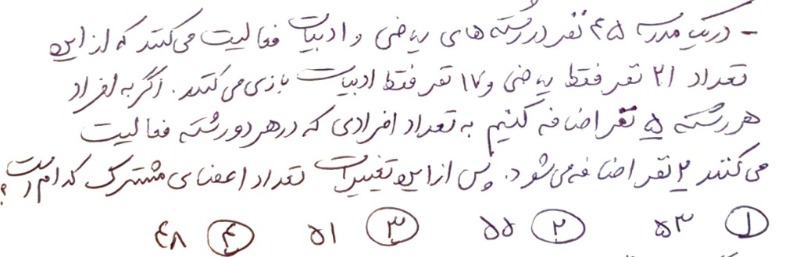 - در یک مدرسه ۴۵ نفر در رشته های ریاضی و ادبیات فعالیت می کنند که از این
تعداد ۲۱ نفر فقط ریاضی و ۱۷ نفر فقط ادبیات بازی می کنند. اگر به افراد
هر رشته ۵ نفر اضافه کنیم به تعداد افرادی که در هر دو رشته فعالیت
می کنند ۲ نفر اضافه می شود. پس از این تغییرات تعداد اعضای مشترک کدام است؟
۱ ۵۳ ۲ ۵۵ ۳ ۵۱ ۴ ۴۸